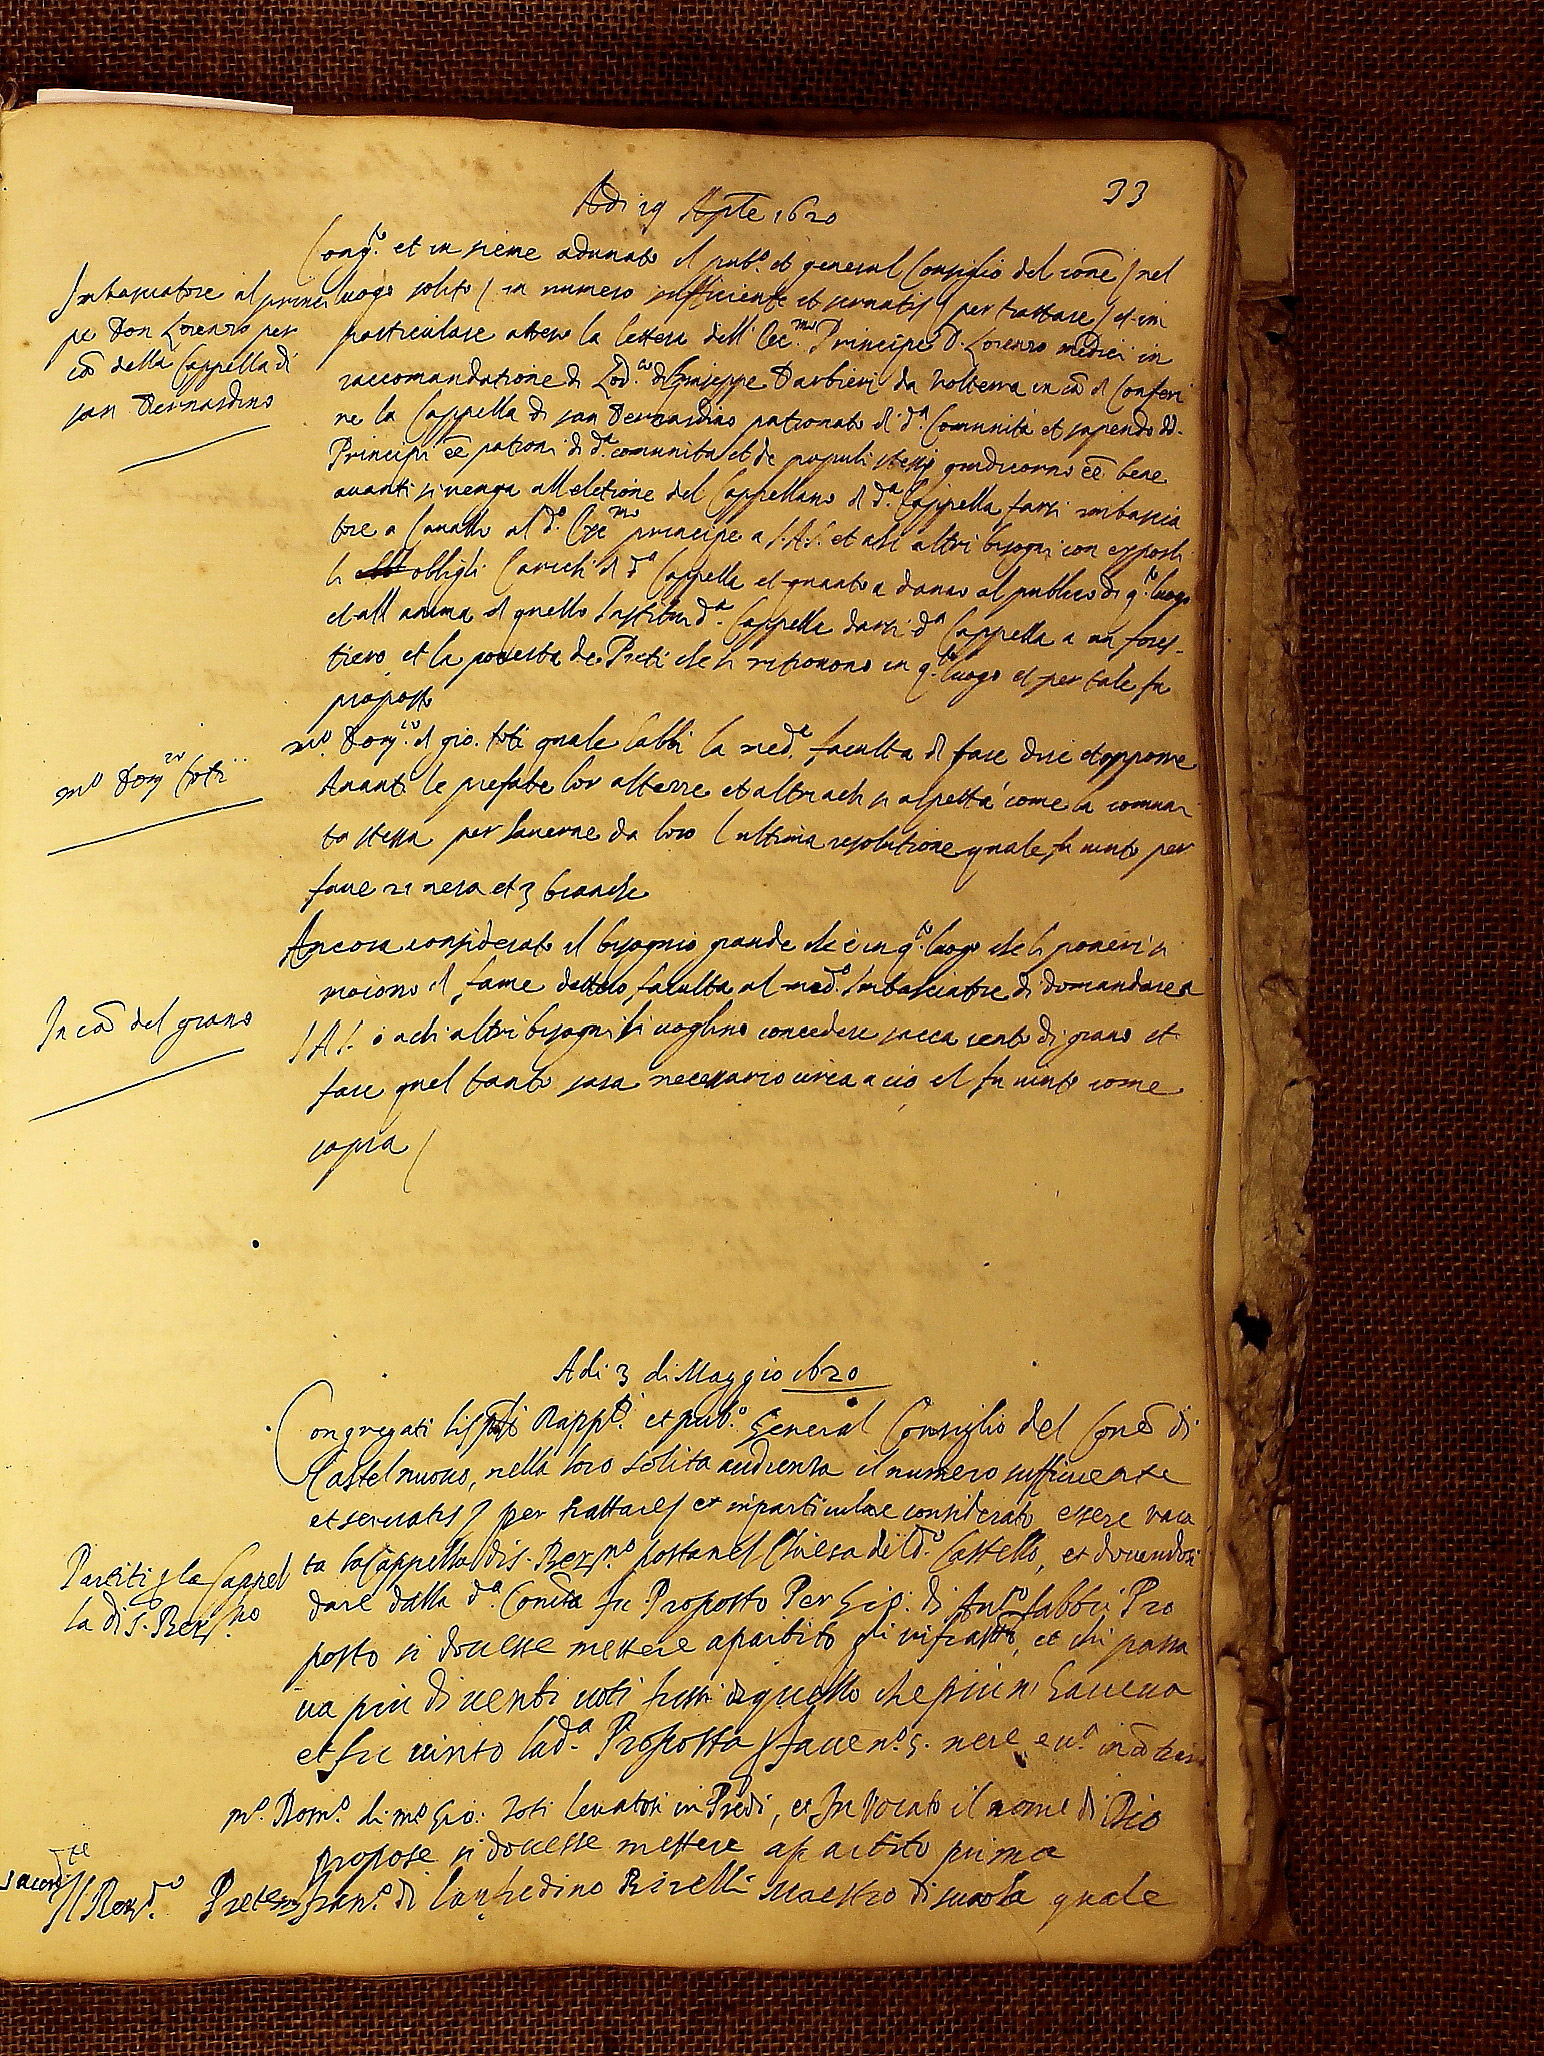 33
Adi 19 Aprle 1620
Congti et insieme adunato il pubo et general Consiglio del Comne nel
luogo solito in numero sufficiente et servatis per trattare et in
particulare atteso la lettera dell Ecmo Principe D. Lorenzo medici in
raccomandatione di di Giuseppe Barbieri da Volterra in ca di Conferi
re la Cappella di san Bernardino patronato di da Comunità et sapendo
Principi ee patroni di da comunita et de populi stessi giudicorno ee bene
avanti si venga all eletione del Cappellano di da Cappella farsi imbascia
tore a Cavallo al do Ecmo principe a S.A.S. et altri bisogni con esporli
li oblighi Carichi di da Cappella et quanto a danno al publico di qto luogo
et all anima di quello da Cappella darsi da Cappella a un fores-
tiero et la poverta de Preti che si ritrovono in qto luogo et per tale fu
proposto
Imbasciatore al princi
pe Don Lorenzo per
ca della Cappella di
san Bernardino
mo Domco di gio. toti quale habbi la meda faculta di fare dire et opporre
Avanti le prefate lor altezze et altri a chi si aspetta come la comuni
ta stessa per haverne da loro l ultima resolutione quale fu vinto per
fave 21 nera et 3 bianche
mo Domco toti
Ancora considerato il bisognio grande che è in qto luogo che li poveri si
moiono di fame dettero faculta al medo Imbasciatore di domandare a
S.A.S. o a chi altri bisogni li voglino concedere sacca cento di grano et
fare quel tanto sara necessario circa a cio et fu vinto come
sopra
In ca del grano
Adi 3 di Maggio 1620
Congregati li Rappti et pubo General Consiglio del Comne di
Castelnuovo, nella loro solita audienza il numero sufficiente
et servatis per trattare et in particulare considerato essere vaca
ta la Cappella di S. Berno posta nel Chiesa di do Castello, et dovendosi
dare dalla da Comita fu Proposto Per Gio: di Anto fabbri Pro
posto si dovesse mettere a partito gli infratti, et chi passa
va piu di venti voti fussi di quello che piu ni haveva
et fu vinto la da Proposta
Partiti p la Cappel
la di S. Berno
mo Domco di mo Gio: Toti levatosi in Piedi, et Invocato il nome di Dio
propose si dovesse mettere a partito prima
Il Revdo Prete Frano di Lanfredino Maestro di scuola quale